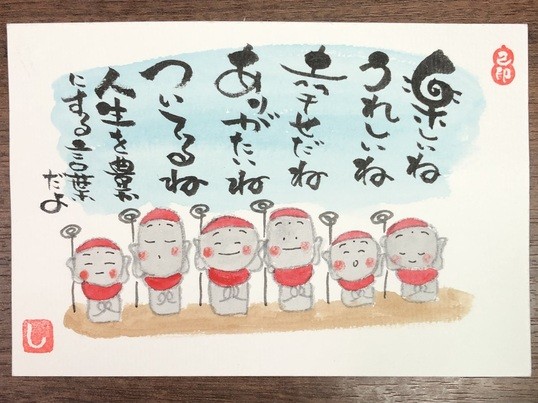 楽しいね
うれしいね
幸せだね
ありがたいね
ついてるね
人生を豊か
にする言葉
だよ
し